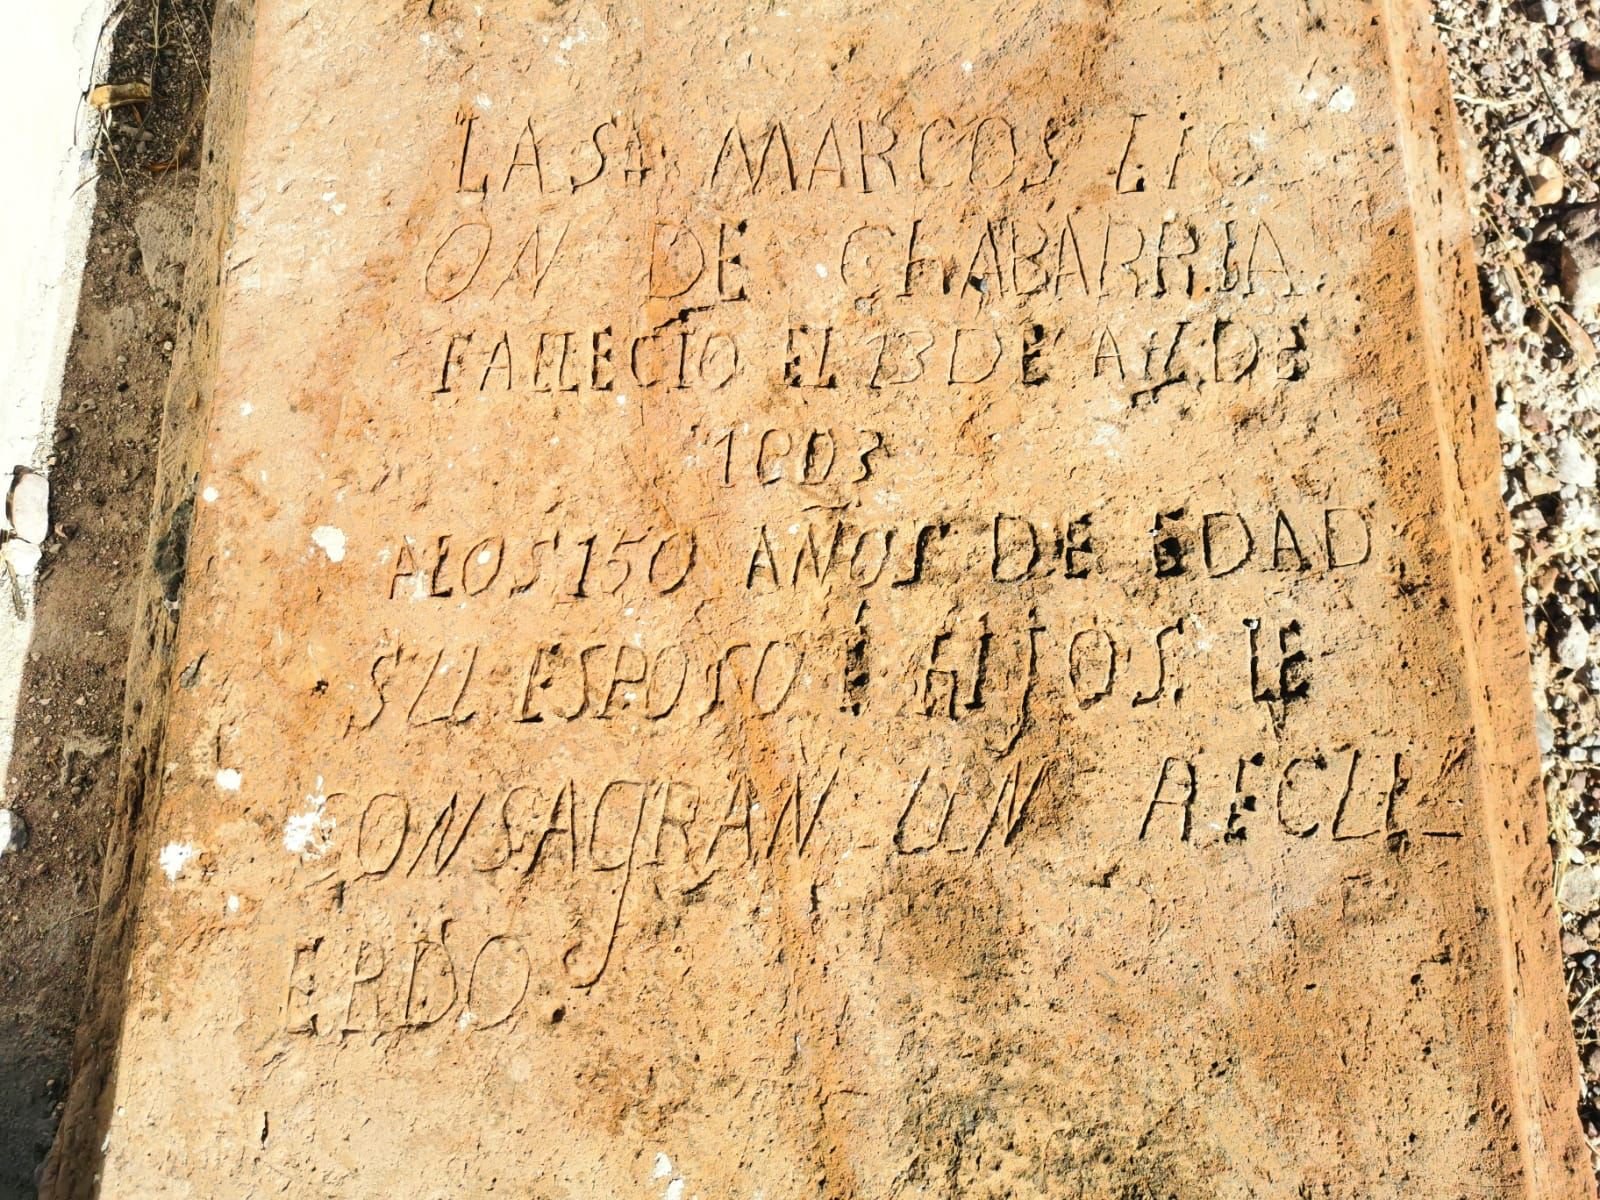 LA SA MARCOS LIC
ON DE CHABARRIA
FALLECIO EL 13 DE DE
ALOS 150 AÑOS DE EDAD
SU ESPOSO É HIJOS LE
CONSAGRAN UN RECU-
ERDO.